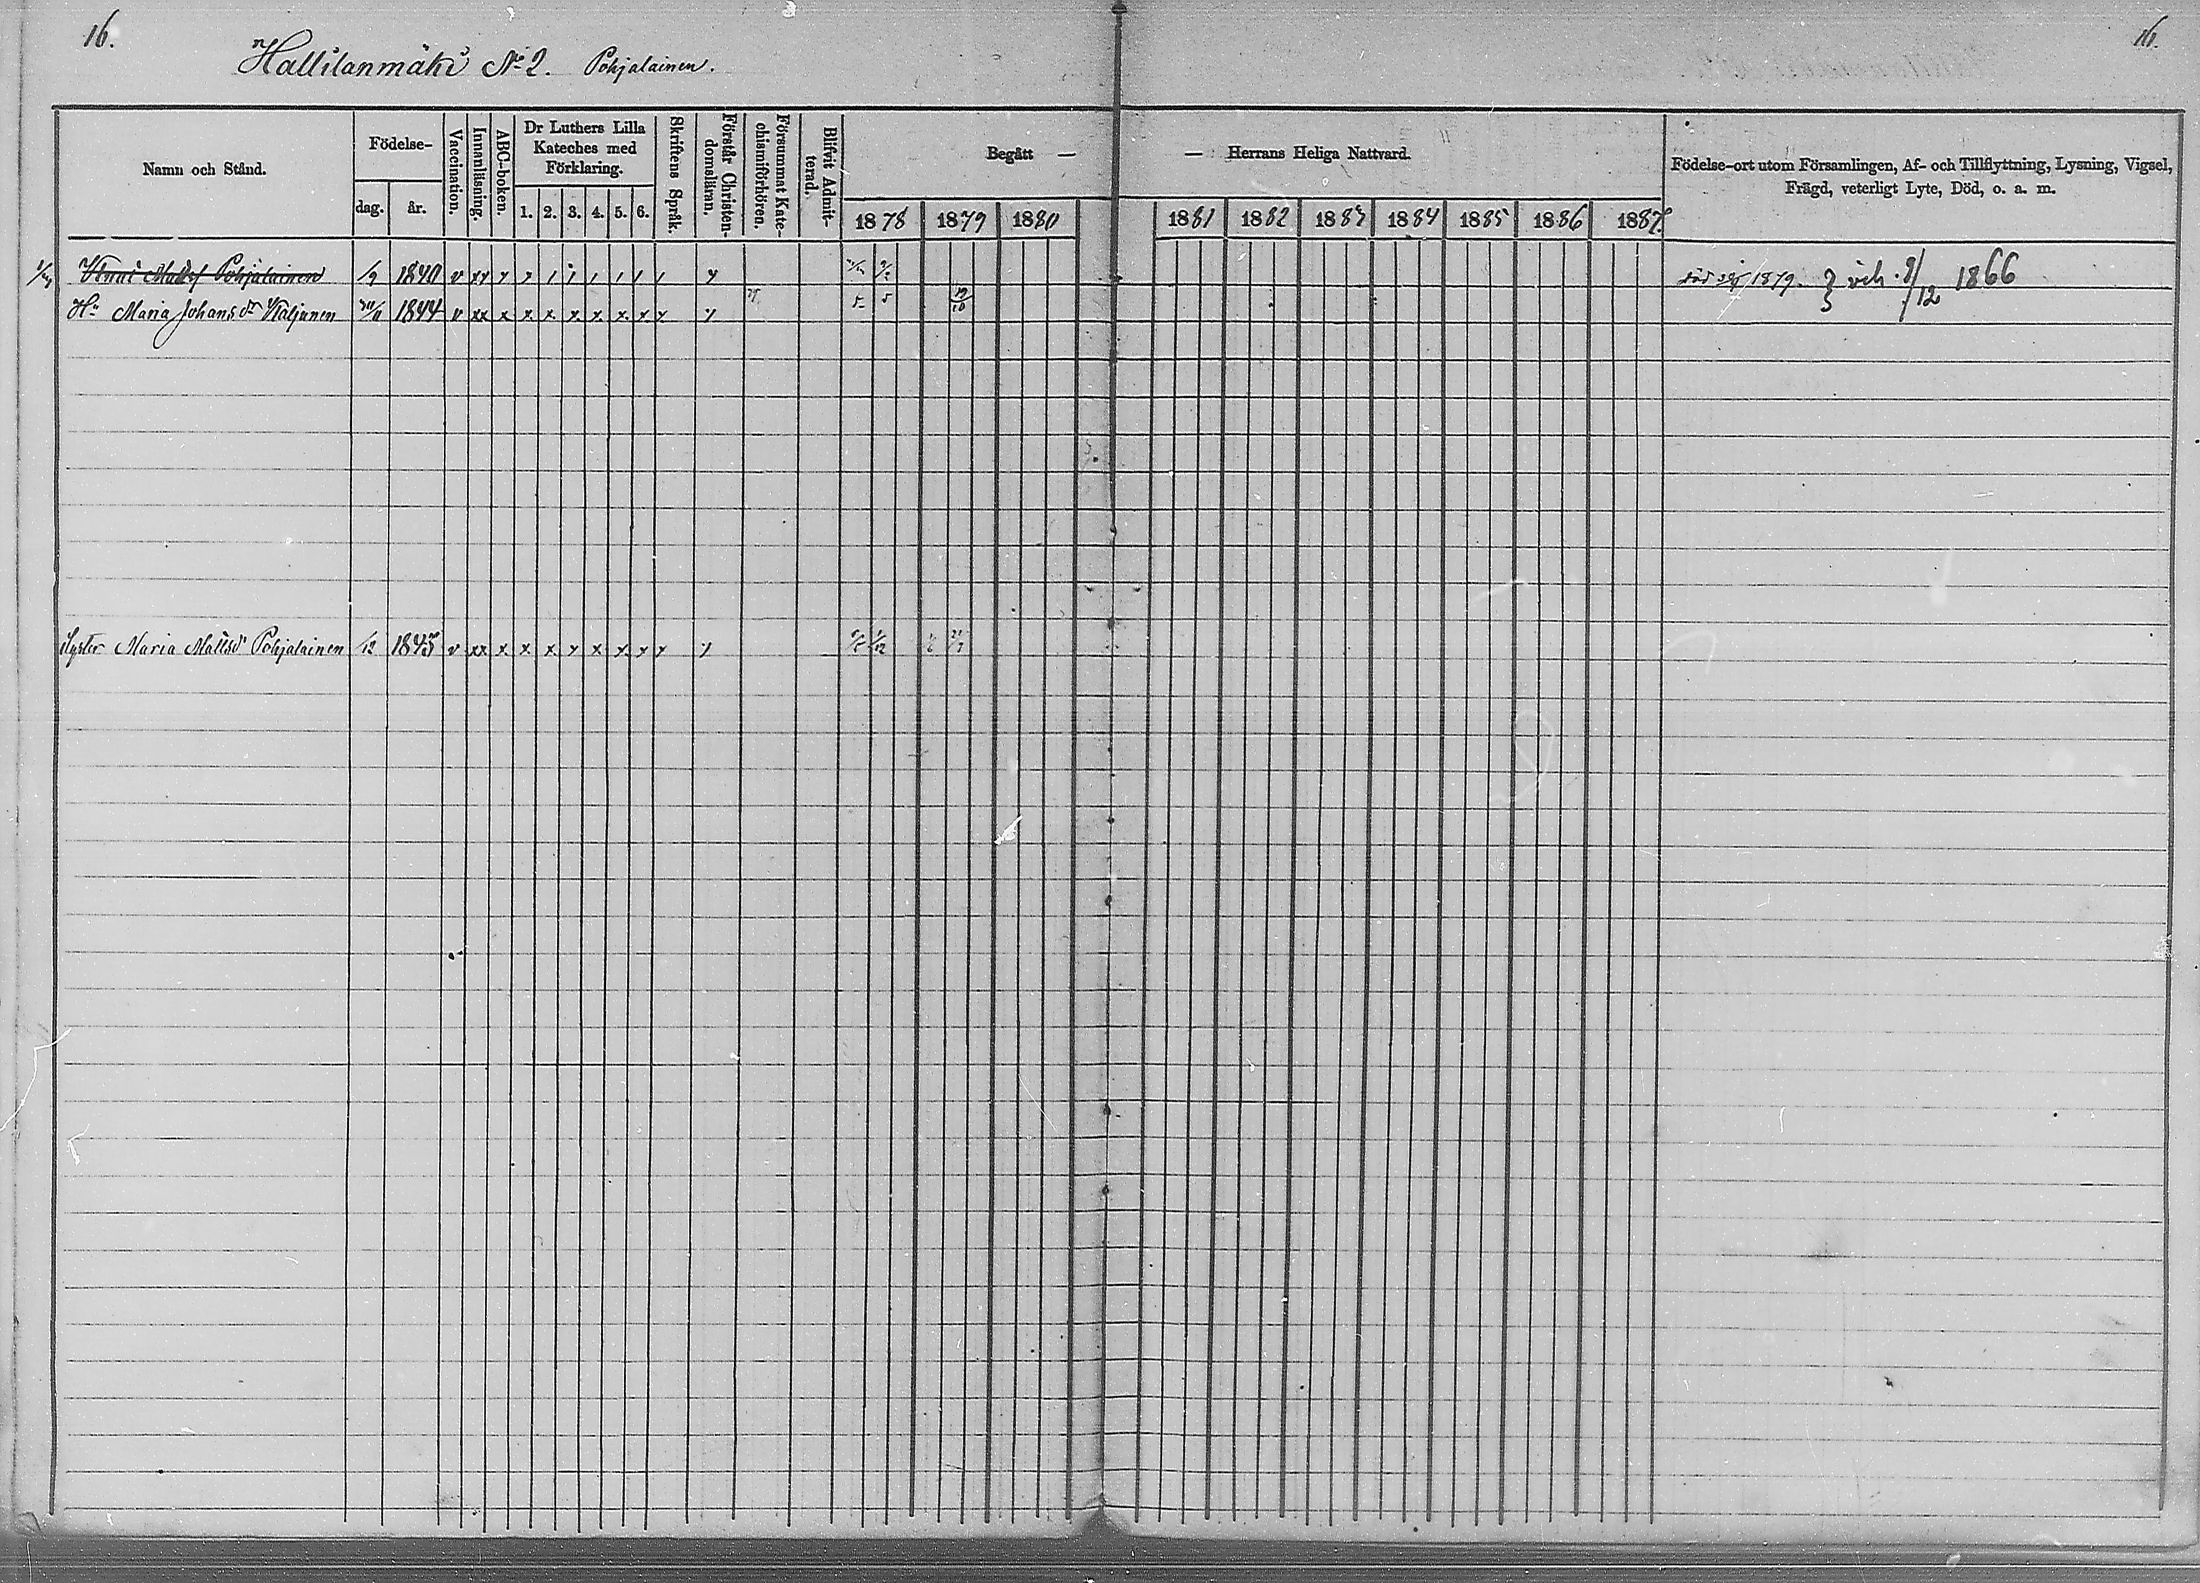 16.
16.
Hallilanmäki No 2. Pohjalainen.
Namn och Stånd.
Födelse-
dag.
år.
Vaccination.
Innanläsning.
ABC-boken.
Dr Luthers Lilla
Kateches med
Förklaring.
1. 2. 3. 4. 5. 6.
Skriftens Språk.
Förstår Christen-
domsläran.
Försummat Kate-
chismiförhören.
Blifvit Admit-
terad.
Begått —
— Herrans Heliga Nattvard.
1878 1879 1880 1881 1882 1883 1884 1885 1886 1887.
Födelse-ort utom Församlingen, Af- och Tillflyttning, Lysning, Vigsel,
Frägd, veterligt Lyte, Död, o. a. m.
Matts Pohjalainen 1/9 1840 v xx död 1879. } vih. 9/12 1866
Hu Maria Johansdr Väljanen 1844 v xx x x x x x x x x 19/10
Syster Maria Mattsdr Pohjalainen /12 1845 v xx x x x x x x x x